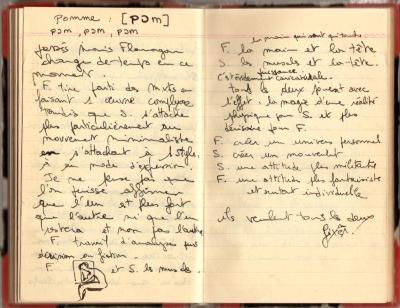 Pomme : [pɔm]
pɔm, pɔm, pɔm
mais Flanagan
change de temps en ce
moment.
F. tire parti des mots en
faisant l'œuvre complexe
tandis que S. s'attache
plus particulièrement au
mouvement minimaliste
s'attachant à 1 style,
à un mode d'expression.
Je ne pense pas que
l'on puisse affirmer
que l'un est plus fort
que l'autre ni que l'un
restera et non pas l'autre
F. travail d'analyse
fiction.
F. et S. les muscles.
en main qui sont qui touche
F. la main et la tête.
S. les muscles et la tête.
puissance
tous les deux jouent avec
l'effet : la magie d'une réalité
physique pour S. et plus
pour F.
F. créer un univers personnel
S. créer un mouvement
S. une attitude plus militante
F. une attitude plus fantaisiste
et surtout individuelle
ils veulent tous les deux